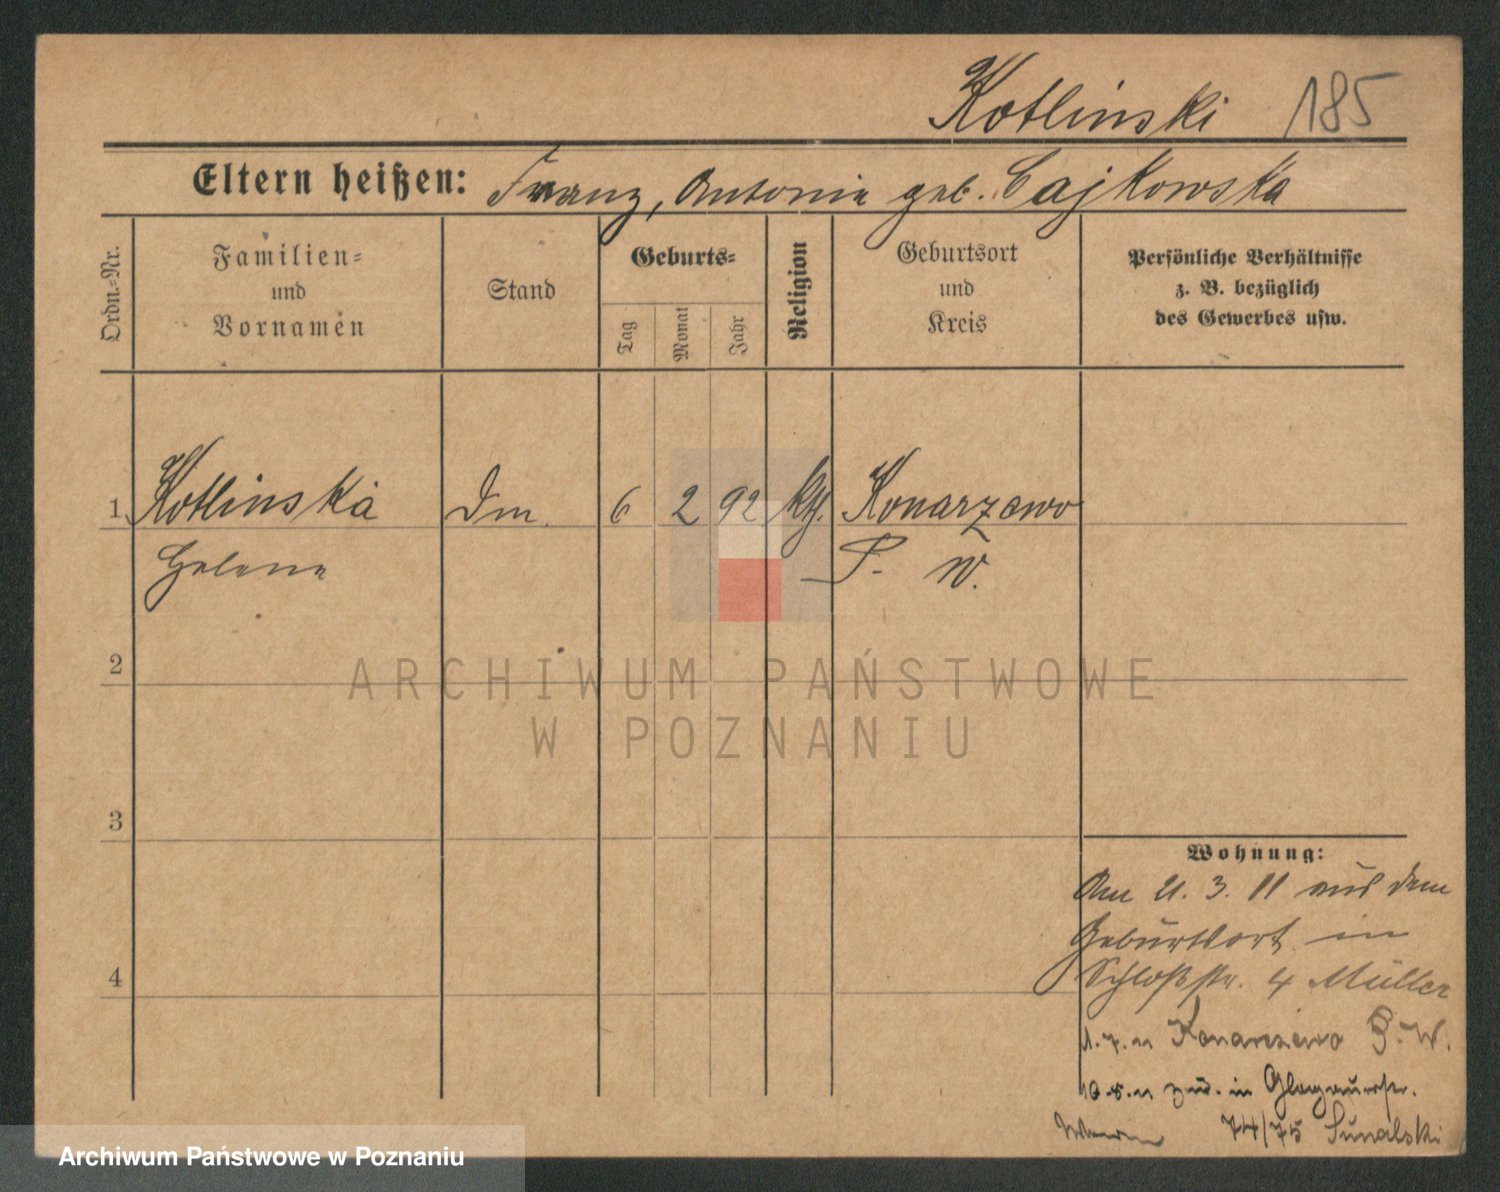 Kotlinski 185
Eltern heißen: Franz, Antonie geb. Cajkowska
Ordn.-Nr.
Familien-
und
Vornamen
Stand
Geburts-
Tag
Monat
Jahr
Religion
Geburtsort
und
Kreis
Persönliche Verhältnisse
z. B. bezüglich
des Gewerbes usw.
1 Kotlinska Dm. 6 2 92 kth. Konarzewo
Helene P. W.
2
ARCHIWUM PAŃSTWOWE
W POZNANIU
3
Wohnung:
Am 21. 3. 11 aus dem
Geburtsort in
Schloßstr. 4 Müller
1. 7. 11 Konarzewo P. W.
10. 8. 11 zur. in Glogauerstr.
74/75 Sunalski
4
Archiwum Państwowe w Poznaniu